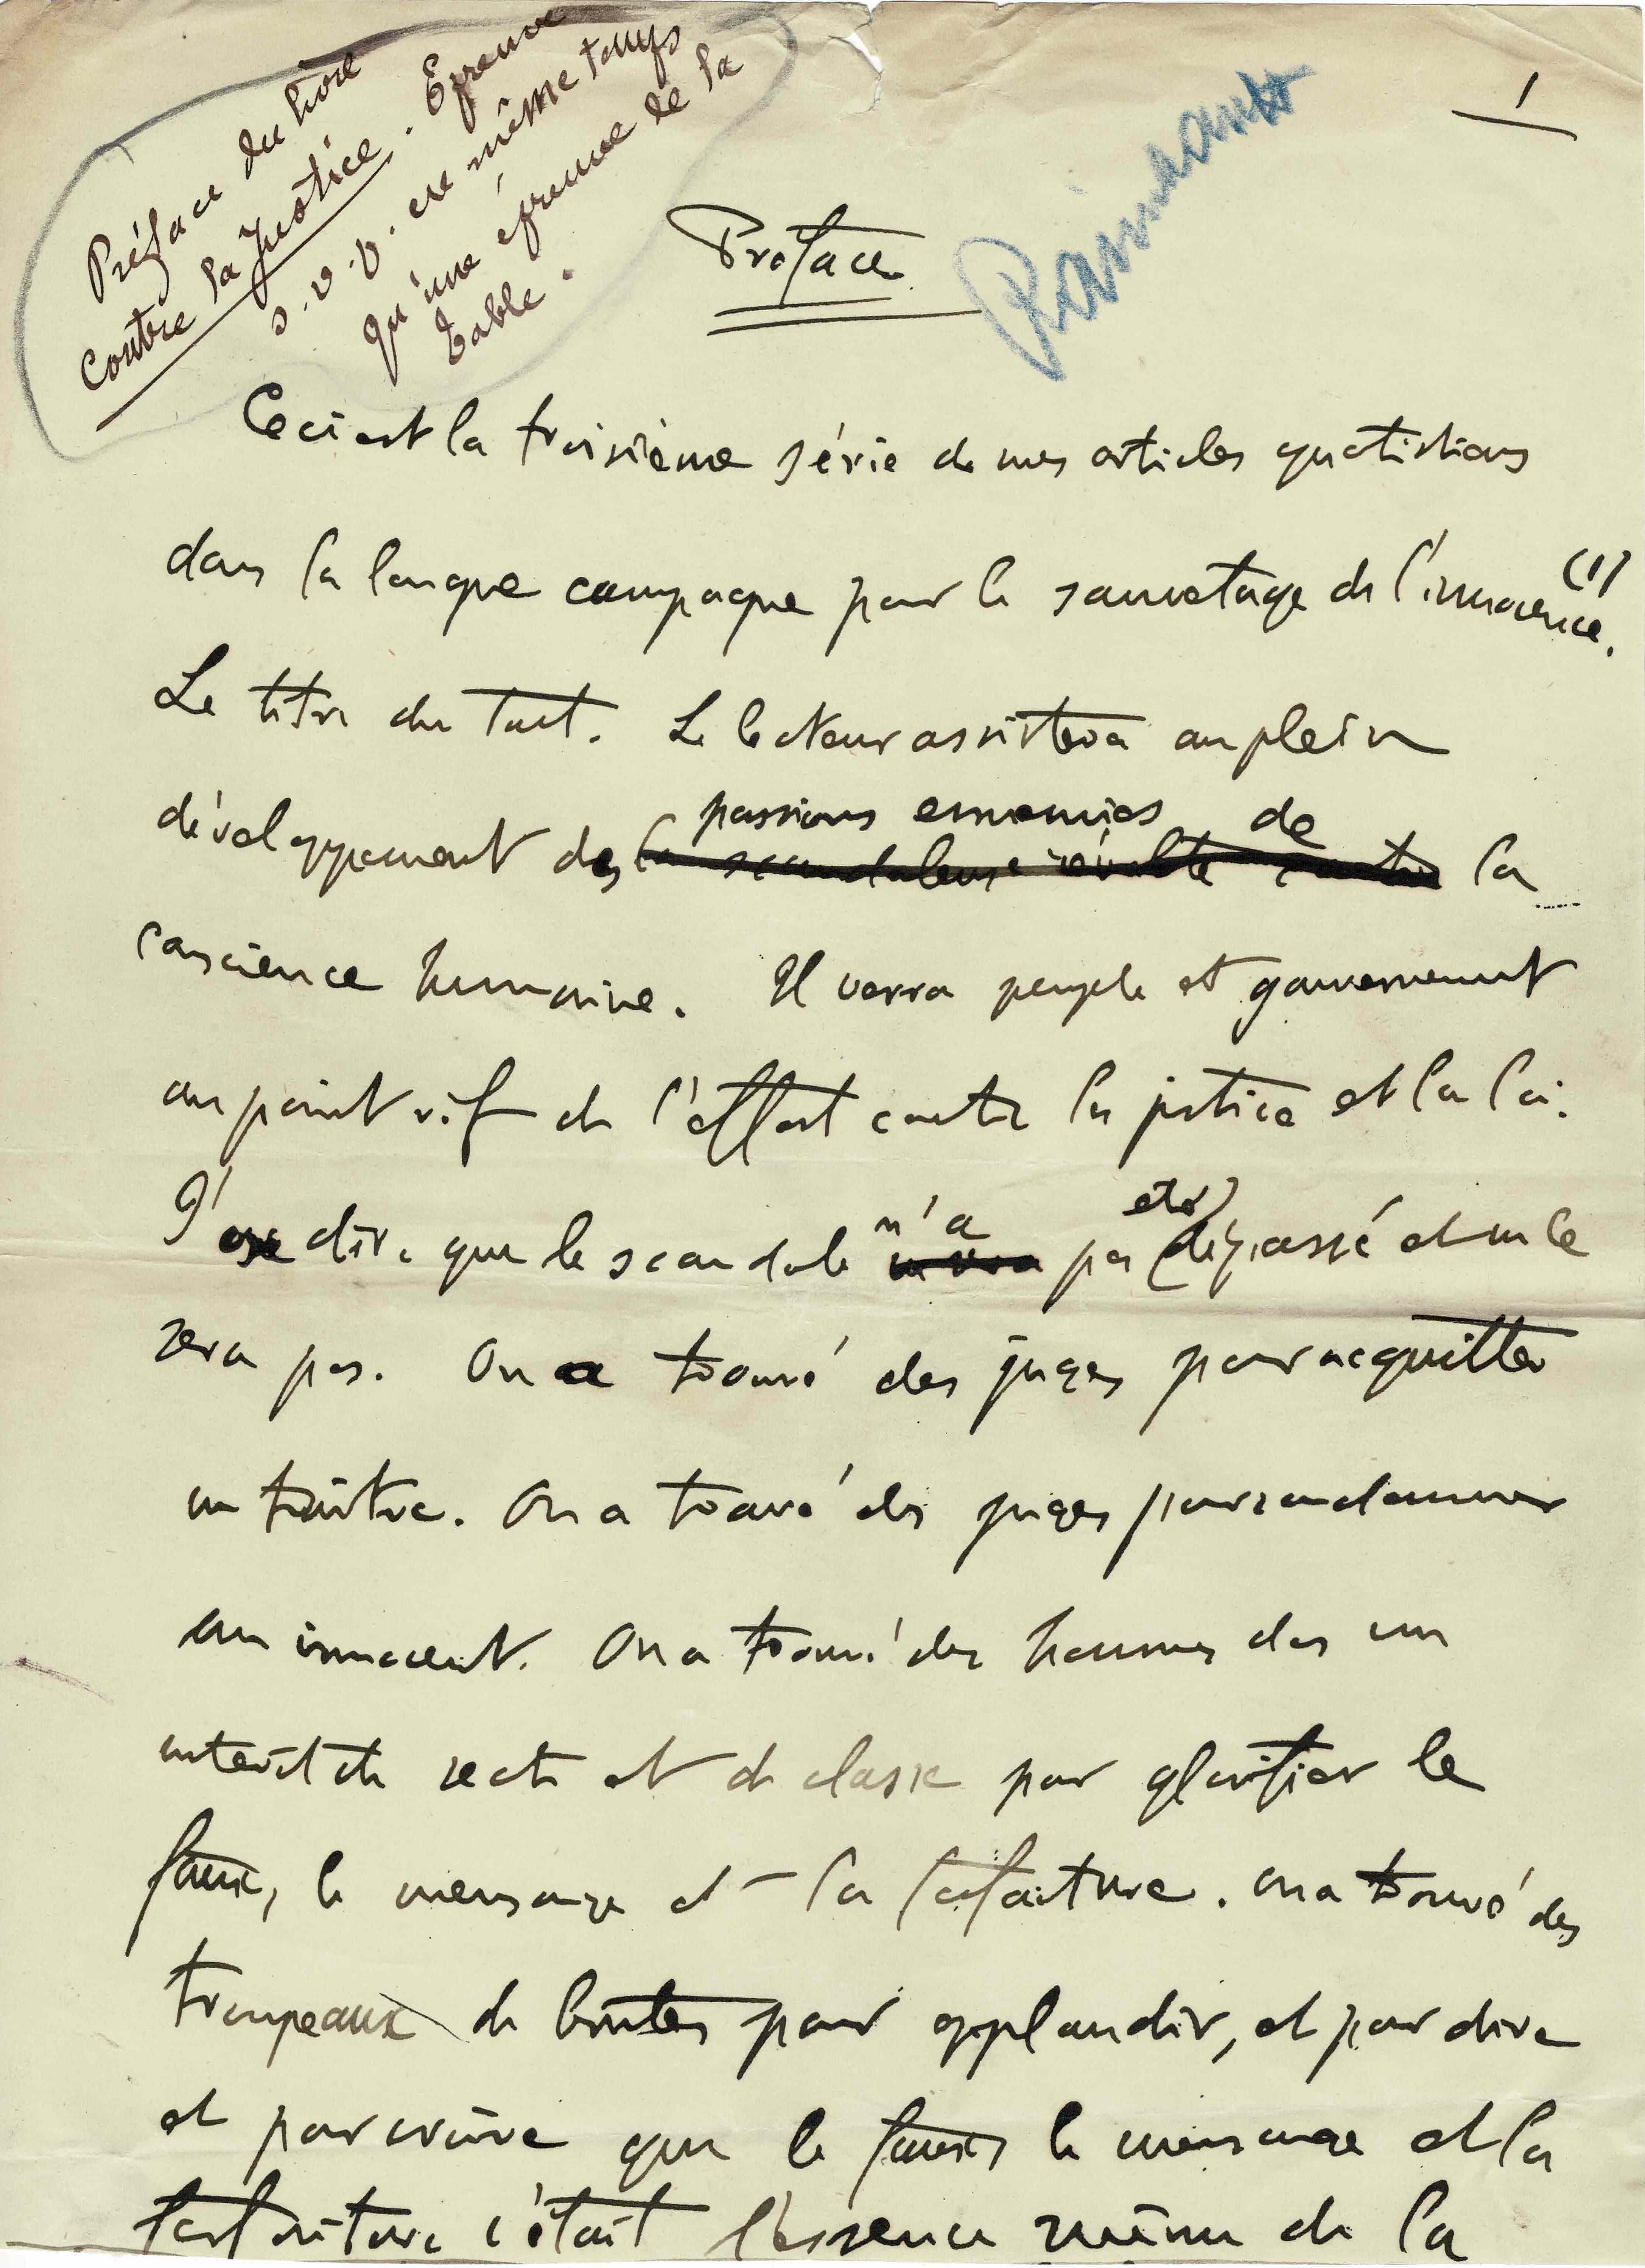 Préface du livre
Contre la Justice. Epreuve
s.v.p. en même temps
qu'une épreuve de la
table.
1
Préface
Ceci est la troisième série de mes articles quotidiens
dans la longue campagne pour le sauvetage de l'innocence. (1)
Le titre dit tout. Le lecteur assistera au plein
passions ennemies de
développement des la scandaleuse révolte contre la
conscience humaine. Il verra peuple et gouvernement
au point vif de l'effort contre la justice et la loi.
été
n'a
J'ose dire que le scandale ne sera pas dépassé et ne le
sera pas. On a trouvé des juges pour acquitter
un traître. On a trouvé des juges pour condamner
un innocent. On a trouvé des hommes dans un
intérêt de secte et de classe pour glorifier le
faux, le mensonge et la forfaiture. On a trouvé des
troupeaux de brutes pour applaudir, et pour dire
et pour croire que le faux, le mensonge et la
forfaiture c'était l'essence même de la